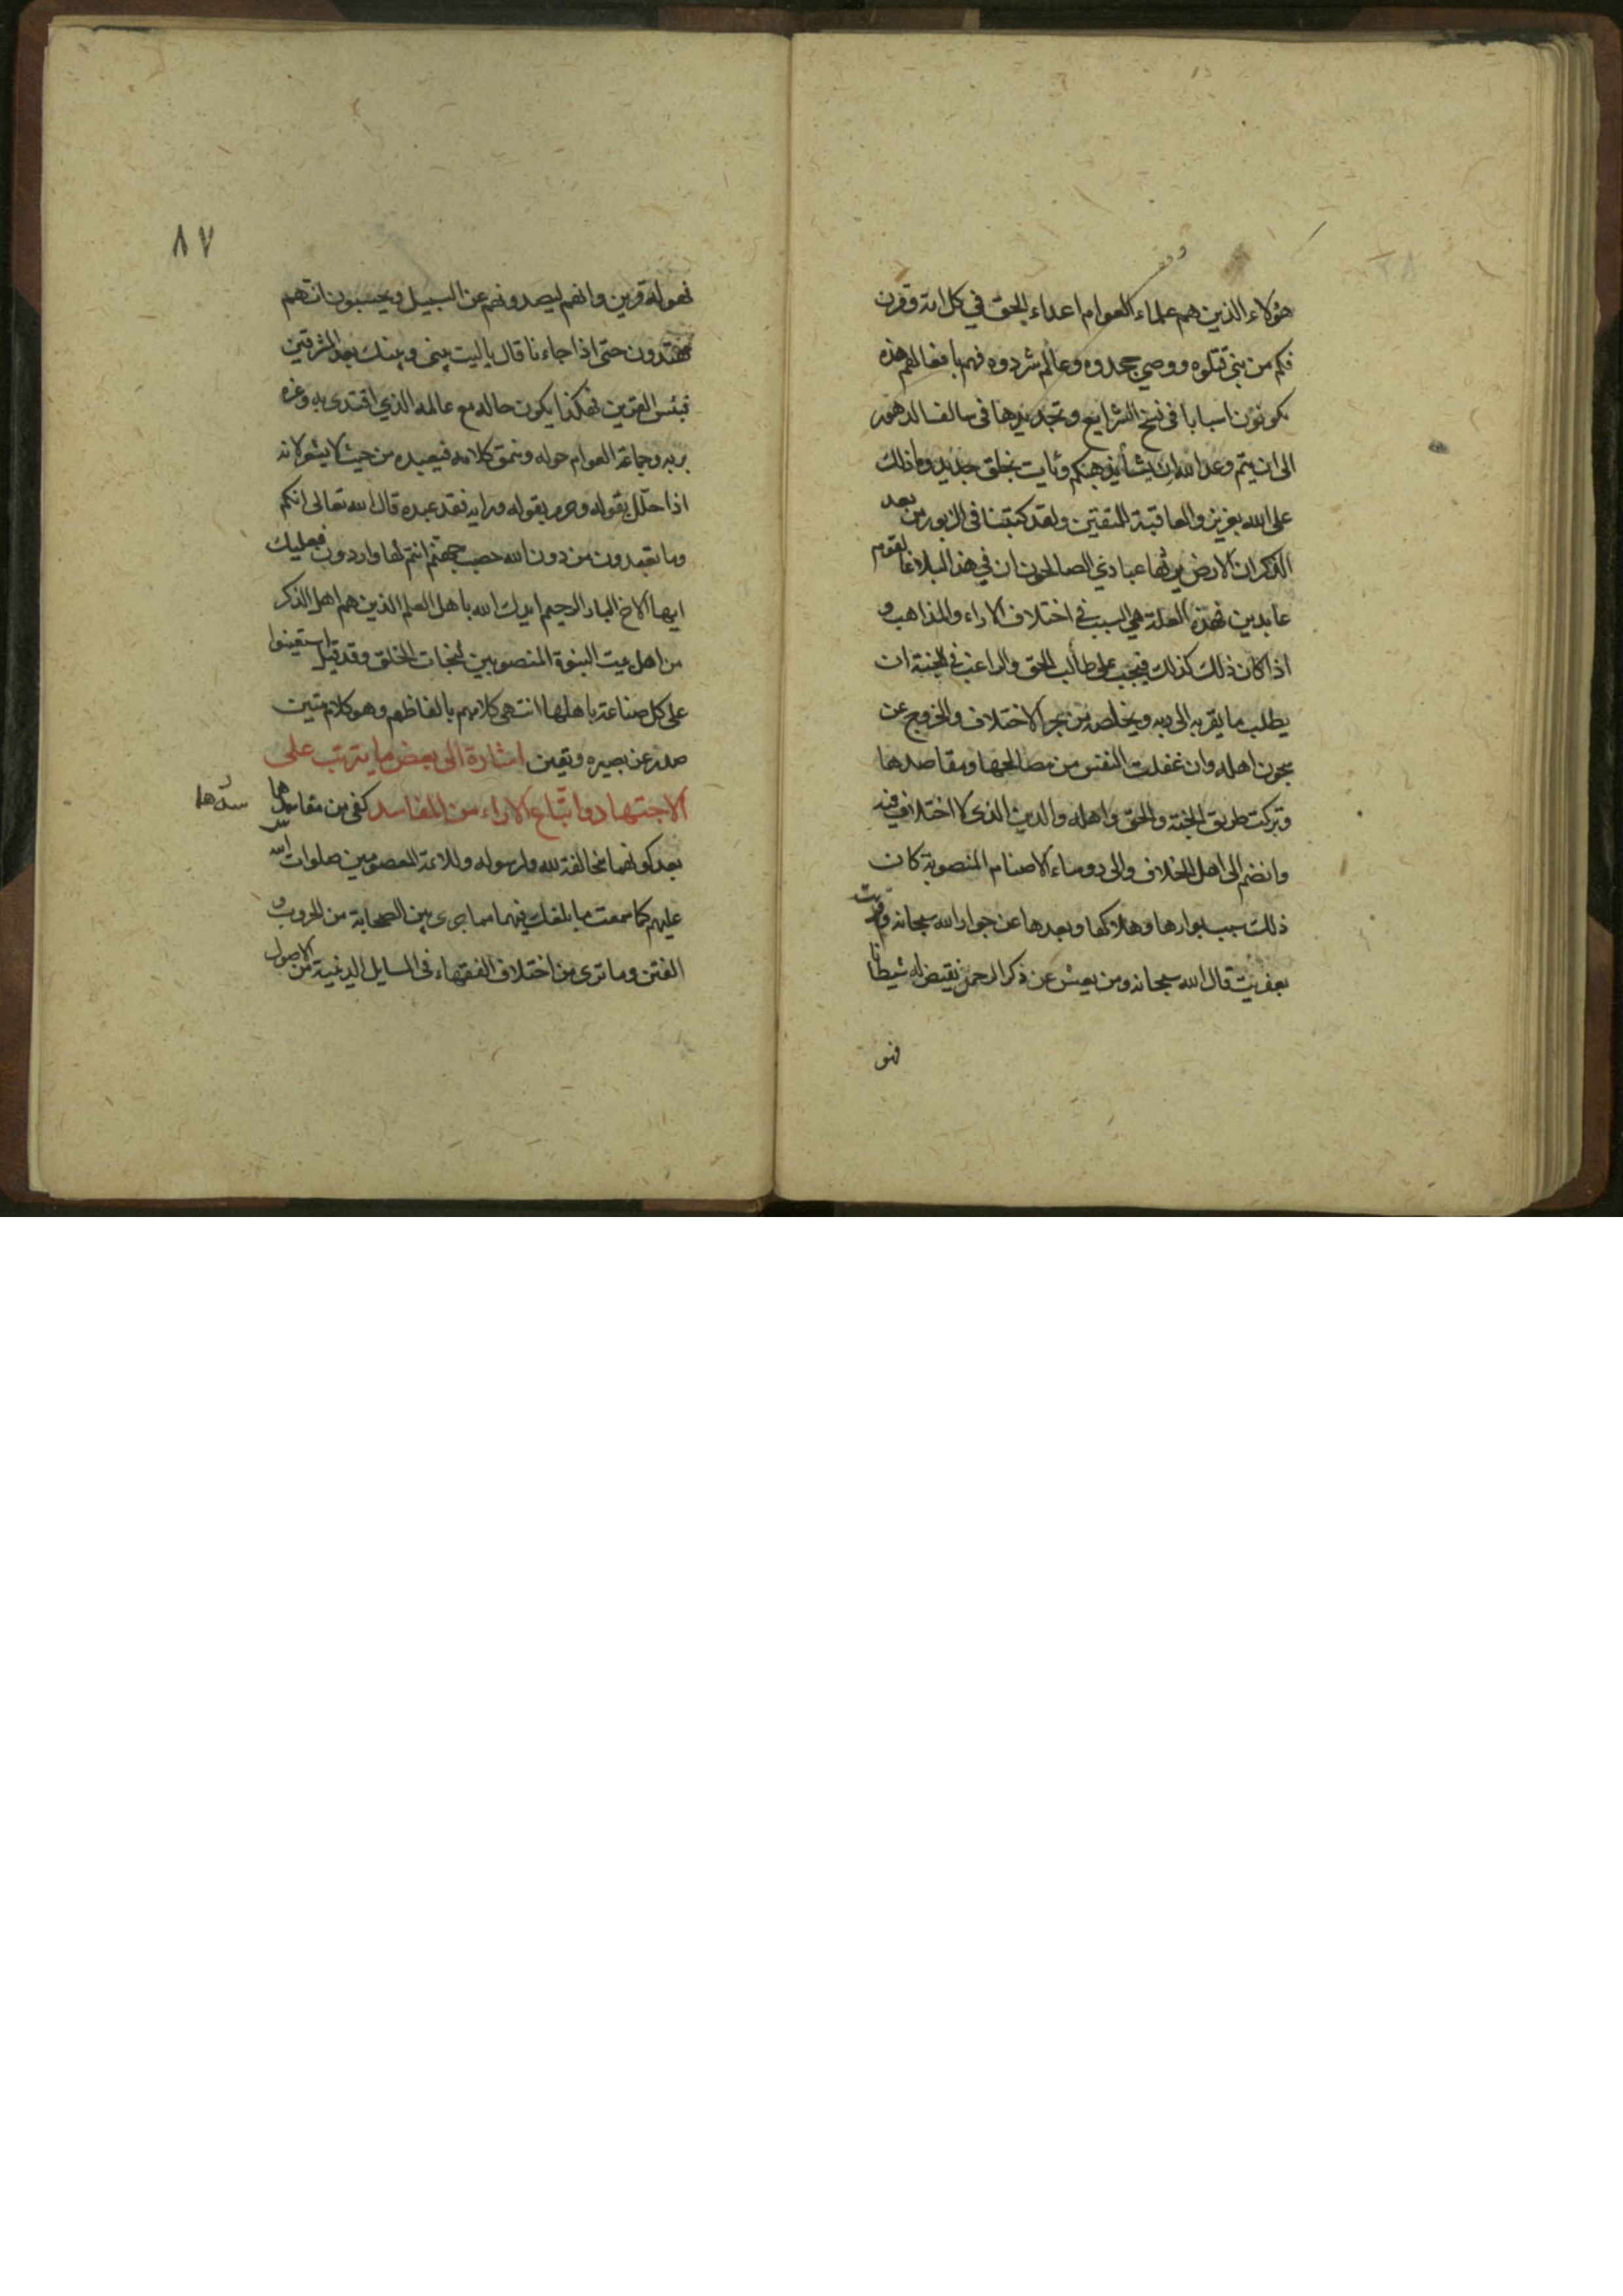 هؤلاء الذين هم علماء العوام اعداء الحق في كل امة وقرن
فكم من نبي قتلوه ووصي جحدوه وعالم شردوه فهم بافعالهم هذه
يكونون اسبابا في نسخ الشرايع وتجديدها في سالف الدهور
الى ان يتم وعد الله ان يشأ يذهبكم ويأت بخلق جديد وما ذلك
على الله بعزيز والعاقبة للمتقين ولقد كتبنا في الزبور من بعد
الذكر ان الارض يرثها عبادي الصالحون ان في هذا لبلاغا لقوم
عابدين فهذه العلة هي السبب في اختلاف الاراء والمذاهب و
اذا كان ذلك كذلك فيجب على طالب الحق والراغب في الجنة ان
يطلب ما يقربه الى ربه ويخلصه من بحر الاختلاف والخروج عن
سجون اهله وان غفلت النفس من مصالحها ومقاصدها
وتركت طريق الجنة والحق واهله والدين الذي لا اختلاف فيه
وانضم الى اهل الخلاف والى رؤساء الاصنام المنصوبة كان
ذلك سبب بوارها وهلاكها وبعدها عن جوار الله سبحانه وقرنت
بعفريت قال الله سبحانه ومن يعش عن ذكر الرحمن نقيض له شيطانا
فهو
٨٧
فهو له قرين وانهم ليصدونهم عن السبيل ويحسبون انهم
مهتدون حتى اذا جاءنا قال يا ليت بيني وبينك بعد المشرقين
فبئس القرين فهكذا يكون حاله مع عالمه الذي اقتدى به وغره
بربه وجماعة العوام حوله وينمق كلامه فيعبده من حيث لا يشعر لانه
اذا حلل بقوله وحرم بقوله ورايه فقد عبده قال الله تعالى انكم
وما تعبدون من دون الله حصب جهنم انتم لها واردون فعليك
ايها الاخ البار الرحيم ايدك الله باهل العلم الذين هم اهل الذكر
من اهل بيت النبوة المنصوبين لنجات الخلق وقد قيل استعينوا
على كل صناعة باهلها انتهى كلامهم بالفاظهم وهو كلام متين
صدر عن بصيره ويقين اشارة الى بعض ما يترتب على
الاجتهاد واتباع الاراء من المفاسد كفى من مفاسدهما
بعد كونهما مخالفة لله ولرسوله وللائمة المعصومين صلوات الله
عليهم كما سمعت ما بلغك فيهما مما جرى بين الصحابة من الحروب و
الفتن وما ترى من اختلاف الفقهاء في المسايل الدينية من الاصول